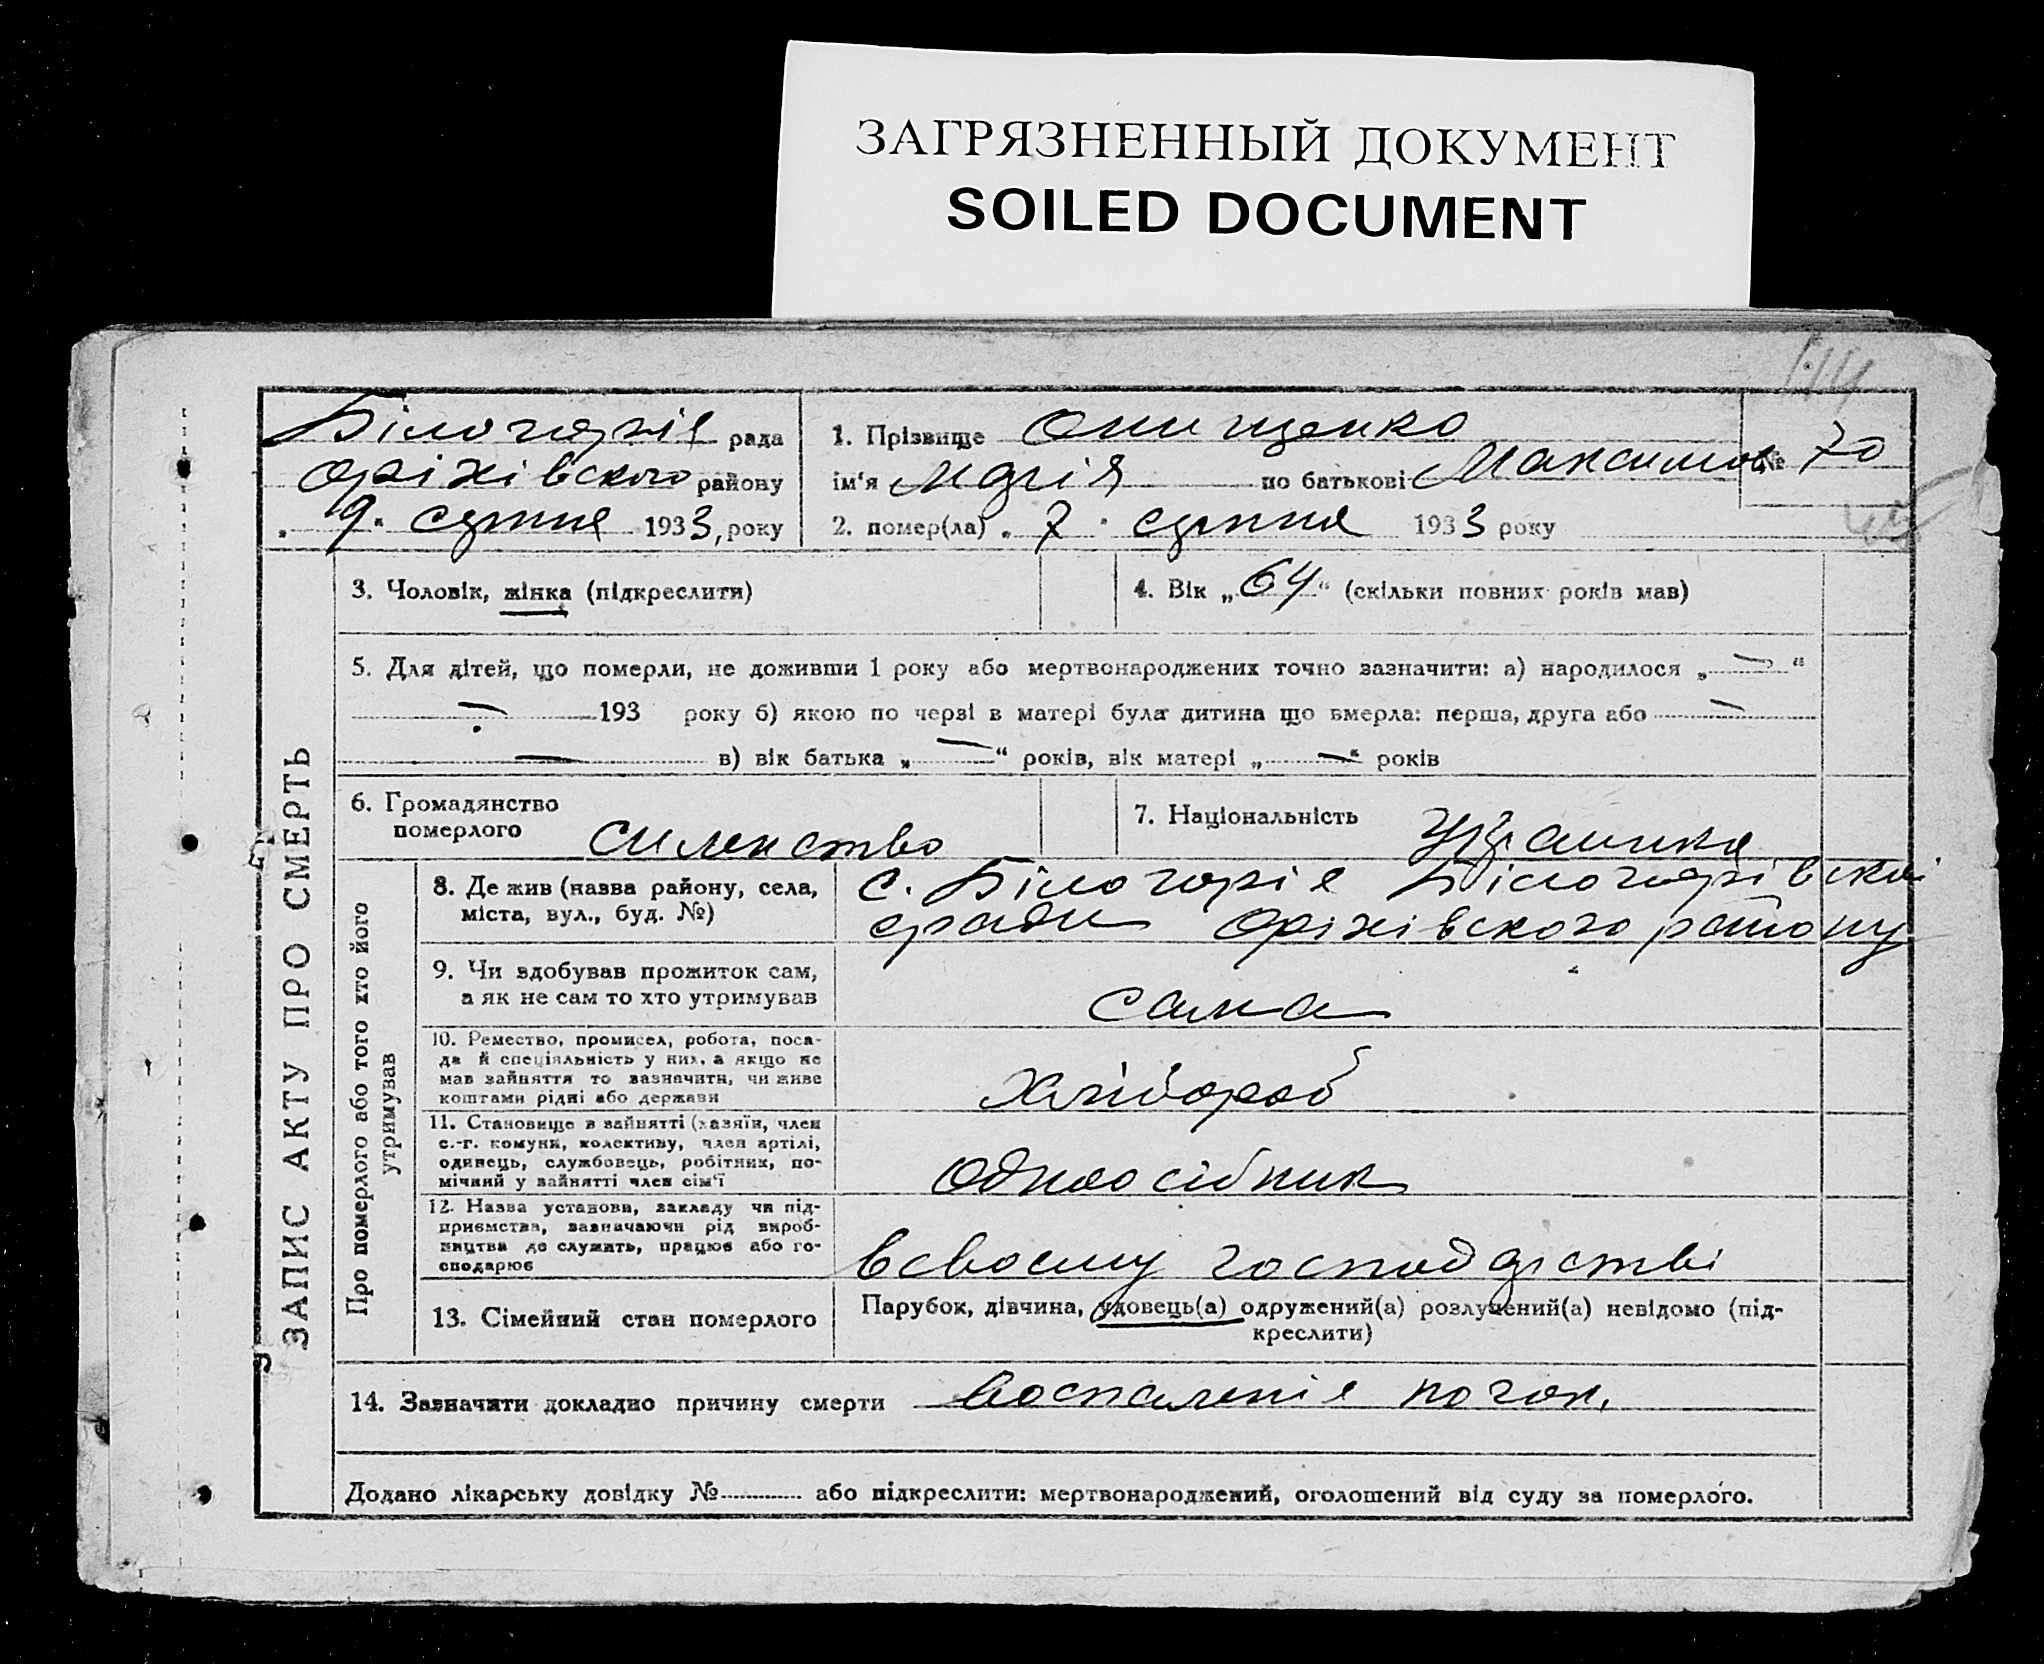 ЗАГРЯЗНЕННЫЙ ДОКУМЕНТ
SOILED DOCUMENT
Білогоріє рада
Оріхівського району
„9“ серпня 1933, року
1. Прізвище Онищенко
ім'я Марія по батькові Максимов
№ 70
2. помер(ла) „7“ серпня 1933 року
ЗАПИС АКТУ ПРО СМЕРТЬ
3. Чоловік, жінка (підкреслити)
4. Вік „64“ (скільки повних років мав)
5. Для дітей, що померли, не доживши 1 року або мертвонароджених точно зазначити: а) народилося „ — “
— 193 року б) якою по черзі в матері була дитина що вмерла: перша, друга або —
— в) вік батька „ — “ років, вік матері „ — “ років
6. Громадянство
померлого
7. Національність Українка
Про померлого або того хто його
утримував
8. Де жив (назва району, села,
міста, вул., буд. №)
с. Білогоріє Білогорівскої
сради Оріхівского району
9. Чи здобував прожиток сам,
а як не сам то хто утримував
сама
10. Ремество, промисел, робота, поса-
да й спеціяльність у них, а якщо не
мав зайняття то зазначити, чи живе
коштами рідні або держави
Хлібороб
11. Становище в зайнятті (хазяїн, член
с.-г. комуни, колективу, член артілі,
одинець, службовець, робітник, по-
мічний у зайнятті член сім'ї
Одноосібник
12. Назва установи, закладу чи під-
приємства, зазначаючи рід вироб-
ництва де служить, працює або го-
сподарює
всвоему господарстві
13. Сімейний стан померлого
Парубок, дівчина, удовець(а) одружений(а) розлучений(а) невідомо (під-
креслити)
14. Зазначити докладно причину смерти воспаленіе почок.
Додано лікарську довідку № або підкреслити: мертвонароджений, оголошений від суду за померлого.